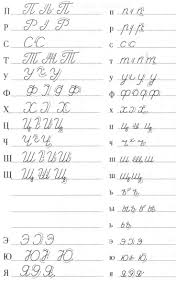 П П П П п п п п
Р Р Р Р р р р р
С С С с с с
Т Т Т Т т т т т
У У У У у у у у
Ф Ф Ф Ф ф ф ф ф
Х Х Х Х х х х х
Ц Ц Ц Ц ц ц ц ц
Ч Ч Ч Ч ч ч ч ч
Ш Ш Ш Ш ш ш ш ш
Щ Щ Щ Щ щ щ щ щ
ъ ъ ъ ъ
ы ы ы ы
ь ь ь
Э Э Э Э э э э э
Ю Ю Ю ю ю ю
Я Я Я Я я я я я